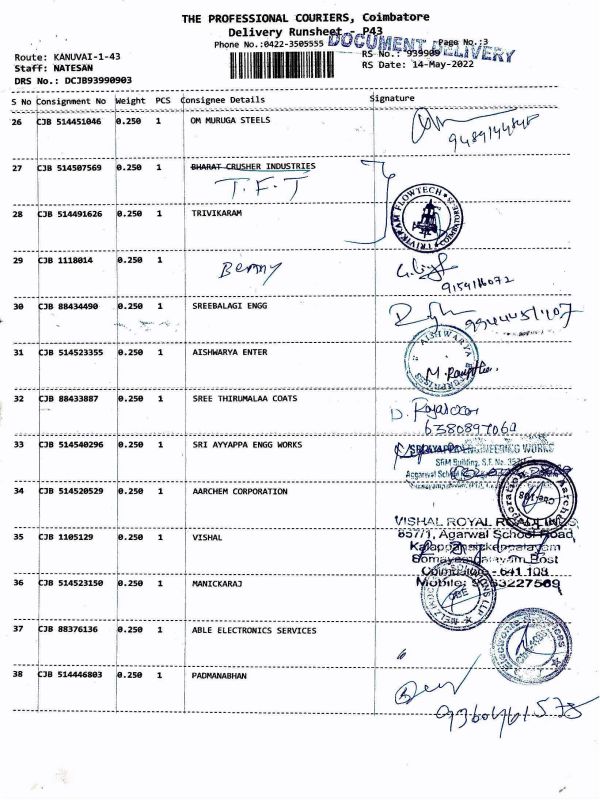 THE PROFESSIONAL COURIERS, Coimbatore
Delivery Runsheet - P43
Phone No.:0422-3505555
Page No.:3
DOCUMENT DELIVERY
Route: KANUVAI-1-43
RS No.: 939909
Staff: NATESAN
RS Date: 14-May-2022
DRS No.: DCJB93990903
S No Consignment No Weight PCS Consignee Details Signature
26 CJB 514451046 0.250 1 OM MURUGA STEELS
27 CJB 514507569 0.250 1 BHARAT CRUSHER INDUSTRIES
T.F.T
28 CJB 514491626 0.250 1 TRIVIKARAM
TRIVIKRAM FLOWTECH
29 CJB 1118014 0.250 1
9159116072
30 CJB 88434490 0.250 1 SREEBALAGI ENGG
31 CJB 514523355 0.250 1 AISHWARYA ENTER
AISHWARYA
32 CJB 88433887 0.250 1 SREE THIRUMALAA COATS
6380897060
33 CJB 514540296 0.250 1 SRI AYYAPPA ENGG WORKS
SRI AYYAPPA ENGINEERING WORKS
SRM Building, S.F. No.
34 CJB 514520529 0.250 1 AARCHEM CORPORATION
Aarchem Corporation
35 CJB 1105129 0.250 1 VISHAL
VISHAL ROYAL ROADLINES
857/1, Agarwal School Road,
Post
Coimbatore - 641 108
36 CJB 514523150 0.250 1 MANICKARAJ
37 CJB 88376136 0.250 1 ABLE ELECTRONICS SERVICES
Electronic Services
38 CJB 514446803 0.250 1 PADMANABHAN